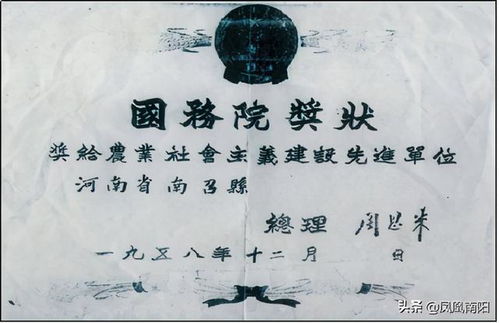 國務院獎狀
奬給農業社會主義建設先進單位
河南省南召縣
總理 周恩来
一九五八年十二月 日
头条 @凤凰南阳